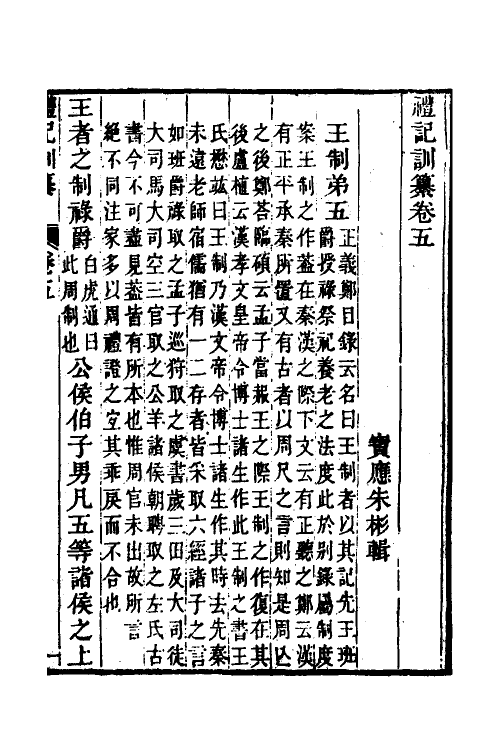 禮記訓纂卷五
寶應朱彬輯
王制弟五
正義鄭目錄云名曰王制者以其記先王班
爵授祿祭祀養老之法度此於別錄屬制度
案王制之作蓋在秦漢之際下文云有正聽之鄭云漢
有正平承秦所置又有古者以周尺之言則知是周亾
之後鄭荅臨碩云孟子當赧王之際王制之作復在其
後盧植云漢孝文皇帝令博士諸生作此王制之書王
氏懋竑曰王制乃漢文帝令博士諸生作其時去先秦
未遠老師宿儒猶有一二存者皆采取六經諸子之言
如班爵祿取之孟子巡狩取之虞書歲三田及大司徒
大司馬大司空三官取之公羊諸侯朝聘取之左氏古
書今不可盡見葢皆有所本也惟周官未出故所言
絕不同注家多以周禮證之宜其乖戾而不合也
王者之制祿爵
白虎通曰
此周制也
公侯伯子男凡五等諸侯之上
禮記訓纂
卷五
一